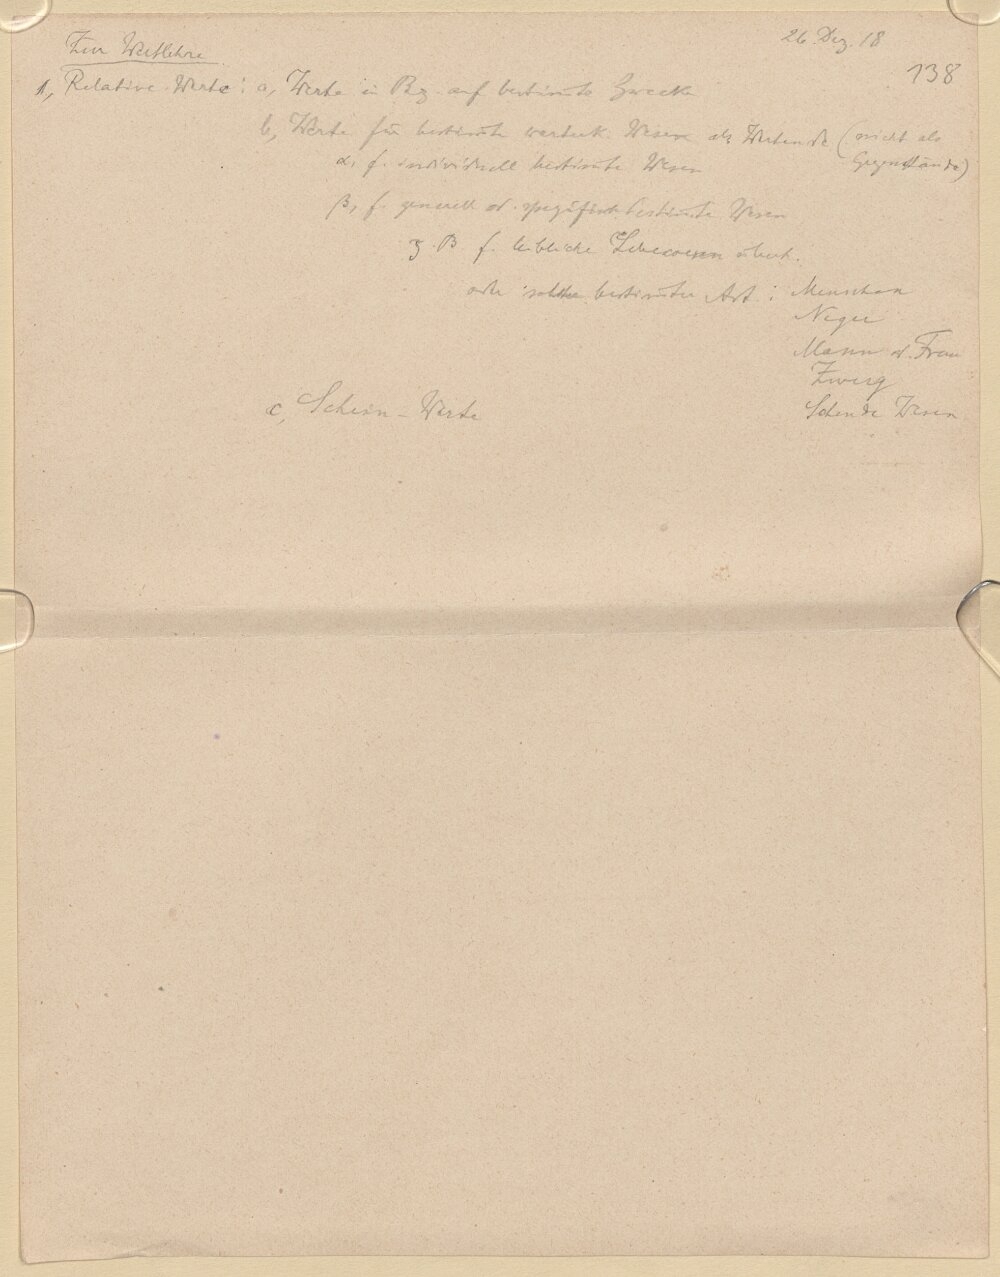 26. Dez. 18
138
Zur Wertlehre
1, Relative Werte: a, Werte in Bez. auf bestimte Zwecke
b, Werte für bestimte Wesen als Wertende (nicht als
Gegenstände)
α, f. individuell bestimte Wesen
β, f. generell od. spezifisch bestimte Wesen
z. B. f. leibliche Lebewesen überh.
oder solche bestimter Art: Menschen
Neger
Mann od. Frau
Zwerg
Sehende Wesen
c, Schein-Werte